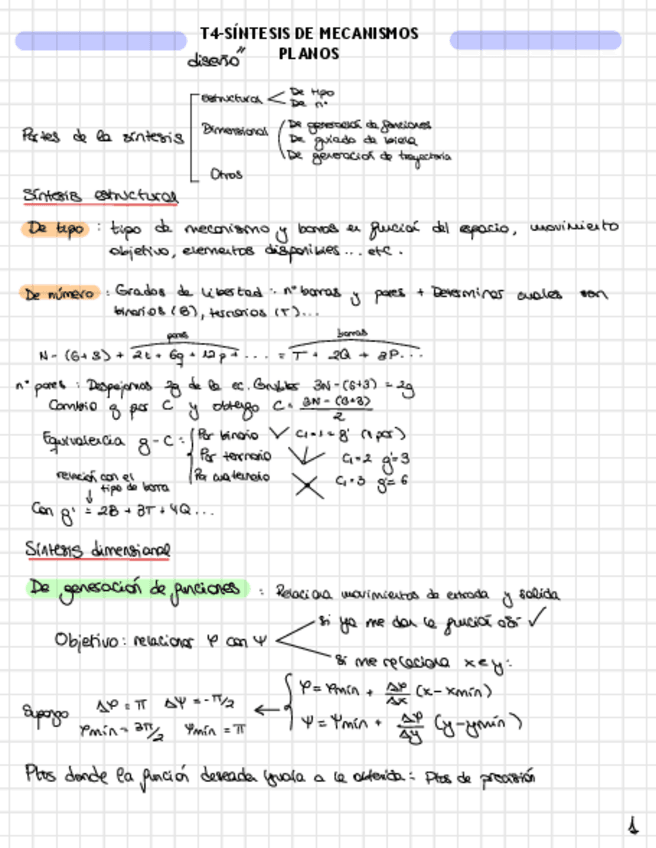 T4-SÍNTESIS DE MECANISMOS
PLANOS
diseño"
Partes de la síntesis
estructural
De tipo
De nº
Dimensional
De generación de funciones
De guiado de biela
De generación de trayectoria
Otros
Síntesis estructural
De tipo : tipo de mecanismo y barras en función del espacio, movimiento
objetivo, elementos disponibles... etc.
De número : Grados de libertad : nº barras y pares + Determinar cuales son
binarios (B), ternarios (T)...
pares barras
N - (G+3) + 2t + 6q + 12p + ... = T + 2Q + 3P...
nº pares : Despejamos 2g de la ec. Grubler 3N-(G+3) = 2g
Cambio g por C y obtengo C = 3N-(G+3) / 2
Equivalencia g - C :
Par binario C=1=g' (1 par)
Par ternario C=2 g'=3
Par cuaternario C=3 g'=6
relación con el
tipo de barra
Con g' = 2B + 3T + 4Q...
Síntesis dimensional
De generación de funciones : Relaciona movimientos de entrada y salida
Objetivo : relacionar φ con ψ
si ya me dan la función así ✓
si me relaciona x e y :
φ = φmín + Δφ/Δx (x-xmín)
ψ = ψmín + Δψ/Δy (y-ymín)
Supongo Δφ = π Δψ = -π/2
φmín = 3π/2 ψmín = π
Ptos donde la función deseada iguala a la obtenida : Ptos de precisión
1